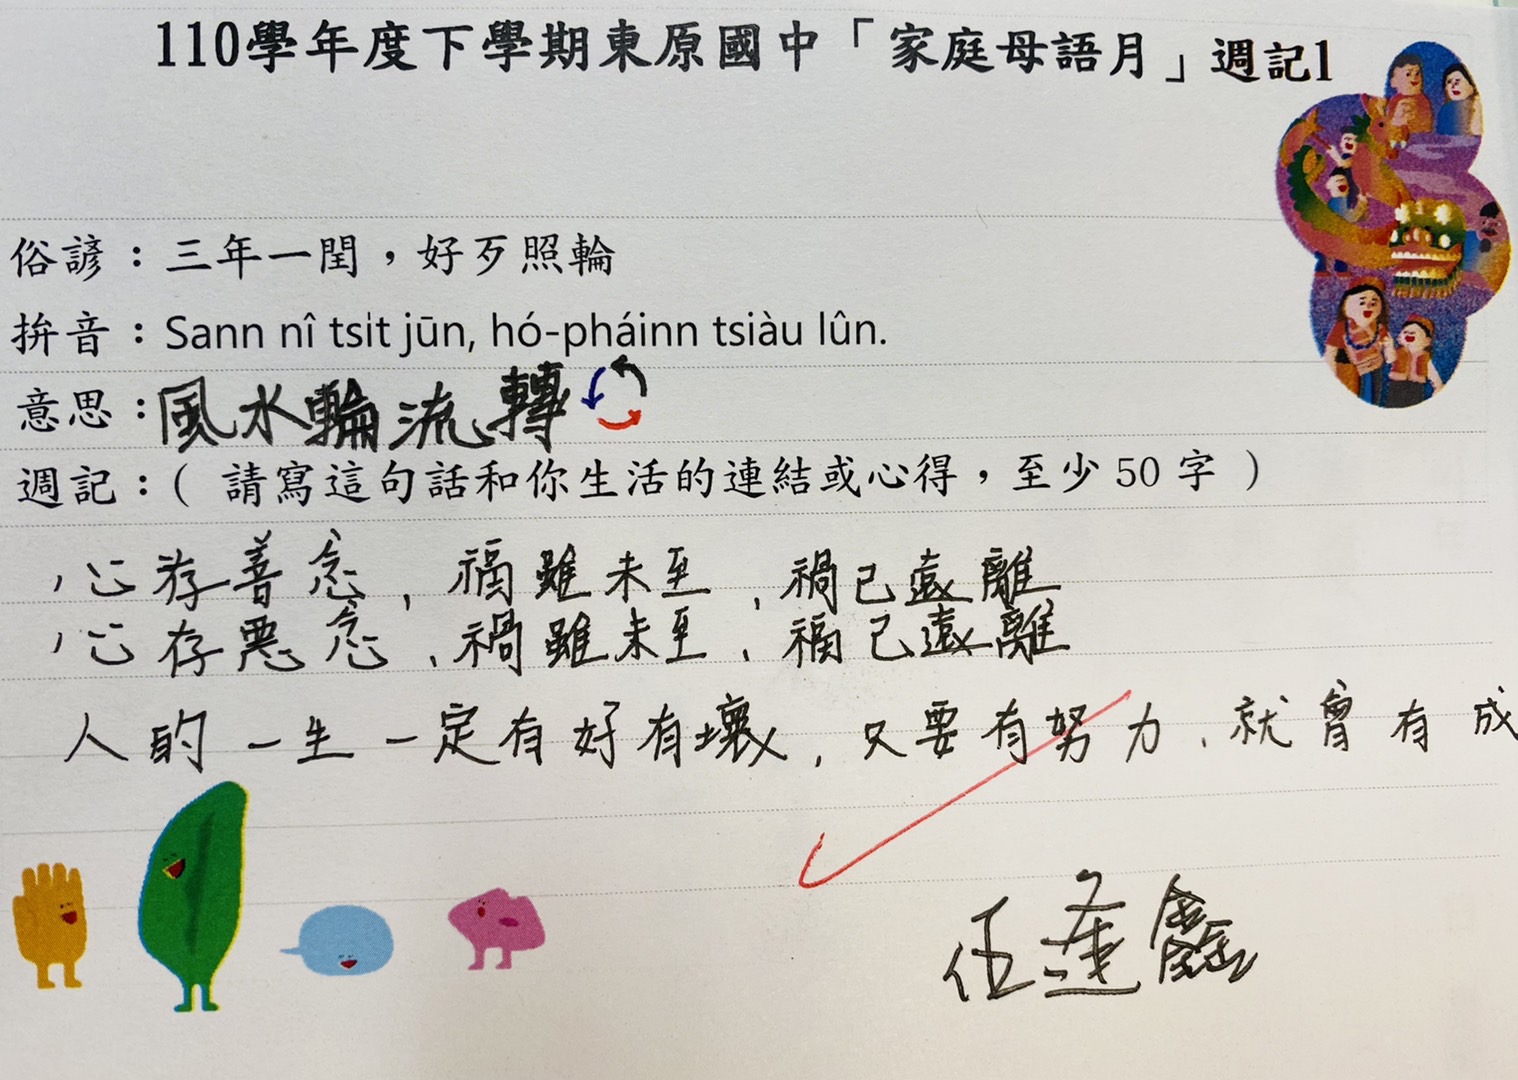 110學年度下學期東原國中「家庭母語月」週記1
俗諺：三年一閏，好歹照輪
拚音：Sann nî tsi̍t jūn, hó-pháinn tsiàu lûn.
意思：風水輪流轉
週記：( 請寫這句話和你生活的連結或心得，至少 50 字 )
心存善念，福雖未至，禍已遠離
心存惡念，禍雖未至，福已遠離
人的一生一定有好有壞，只要有努力，就會有成
伍逢鑫